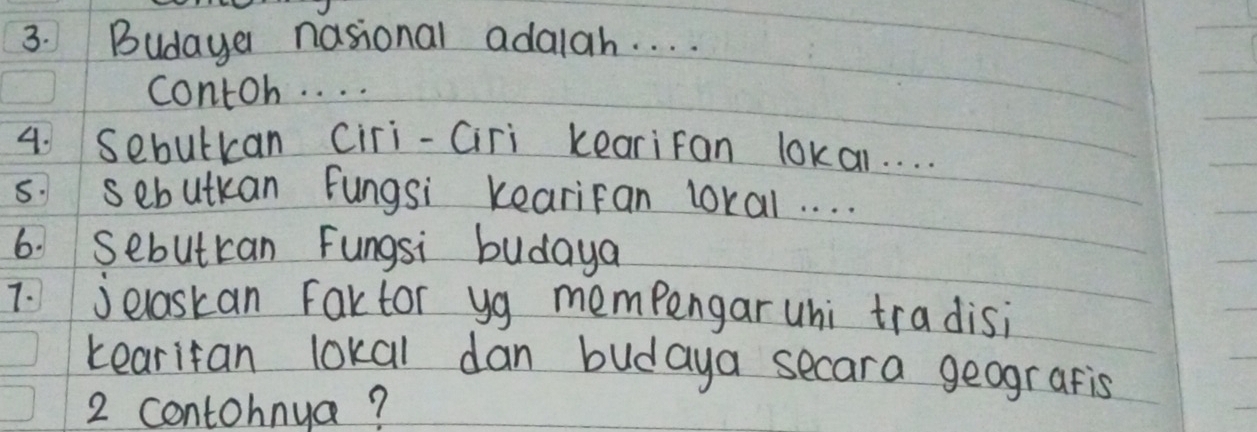 3. Budaya nasional adalah....
contoh....
4. Sebutkan Ciri-Ciri kearifan lokal....
5. sebutkan Fungsi kearifan lokal....
6. Sebutkan Fungsi budaya
7. jelaskan Faktor yg mempengaruhi tradisi
kearifan lokal dan budaya secara geografis
2 contohnya ?